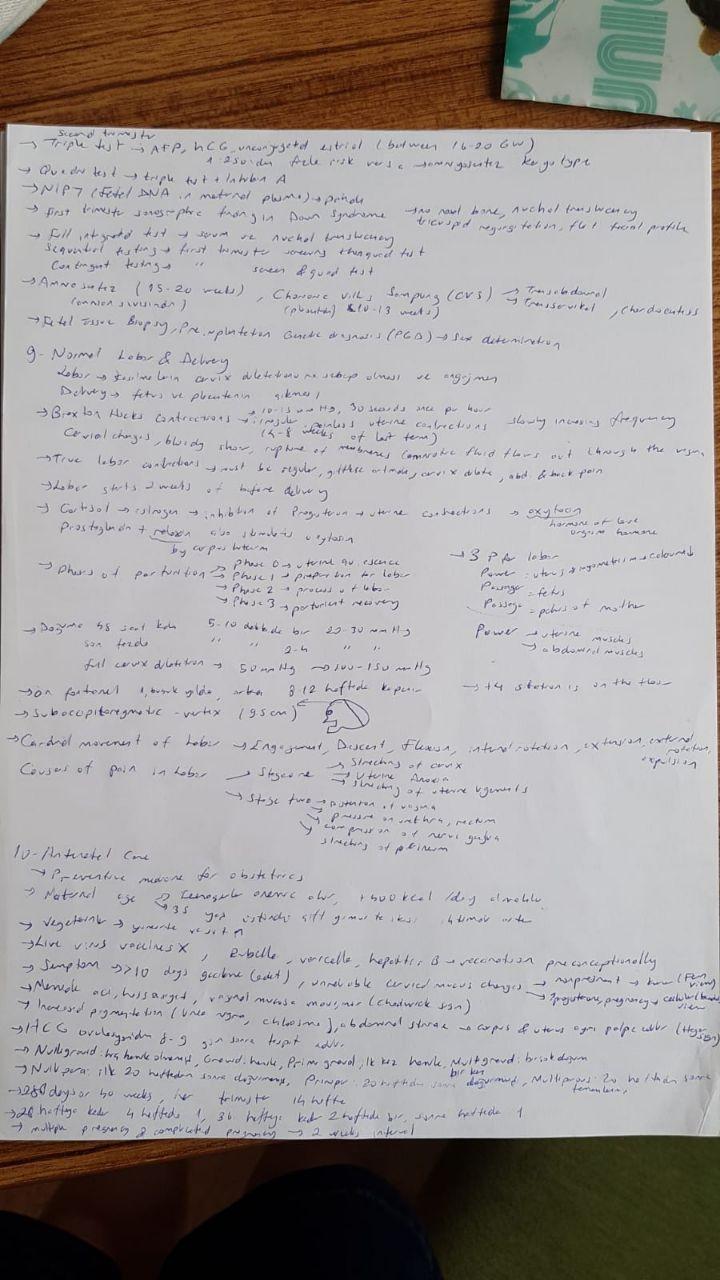 second trimester
→ Triple test → AFP, hCG, unconjugated estriol (between 16-20 GW)
1:250'den fazla risk varsa → amnyosentez karyotype
→ Quadro test → triple test + Inhibin A
→ NIPT (Fetal DNA in maternal plasma) → pahalı
→ First trimester sonographic finding in Down Syndrome → no nasal bone, nuchal translucency
tricuspid regurgitation, flat facial profile
→ Full integrated test → serum ve nuchal translucency
Sequential testing → first trimester screening then quad test
Contingent testing → " screen & quad test
→ Amnosentez (15-20 weeks), Chorionic villus Sampling (CVS) → Transabdominal
→ Transservikal, Chordocentesis
(amnion sıvısından) (placenta) (10-13 weeks)
→ Fetal tissue Biopsy, Preimplantation Genetic diagnosis (PGD) → Sex determination
9- Normal Labor & Delivery
Labor → cervix dilatation olması ve
Delivery → fetus ve placentanın çıkması
→ Braxton Hicks contractions → 10-15 mmHg, 30 seconds once per hour
irregular, painless uterine contractions slowly increasing frequency
(4-8 weeks of last term)
Cervical changes, bloody show, rupture of membranes (amniotic fluid flows out through the vagina
→ True labor contractions → must be regular, gittikçe artmalı, cervix dilate, abd. & back pain
→ Labor starts 2 weeks of before delivery
→ Cortisol → estrogen → inhibition of Progesteron → uterine contractions → oxytocin
hormone of love
orgasm hormone
Prostaglandin + relaxin also stimulates oxytocin
by corpus luteum
→ Phases of parturition → Phase 0 → uterine quiescence
→ Phase 1 → preparation for labor
→ Phase 2 → process of labor
→ Phase 3 → parturient recovery
→ 3 P for labor
Power: uterus
Passenger = fetus
Passage = pelvis of mother
Power → uterine muscles
→ abdominal muscles
→ Doğuma 48 saat kala 5-10 dakikada bir 20-30 mmHg
son fazda " " 2-4 " "
full cervix dilatation → 50 mmHg → 100-150 mmHg
→ ön fontanel 8-12 haftada kapanır
→ +4 station is on the floor
→ Suboccipitobregmatic - vertex (9.5cm)
→ Cardinal movement of labor → Engagement, Descent, Flexion, internal rotation, extension, external
rotation,
expulsion
Causes of pain in labor → Stage one → Streching of cervix
→ Uterine Anoxia
→ Streching of uterine ligaments
→ Stage two → distention of vagina
→ pressure on urethra, rectum
→ compression of nerve ganglia
streching of perineum
10- Antenatal Care
→ Preventive medicine for obstetrics
→ Maternal age → Teenagelar anemic olur, +400 kcal/day almalılar
→ 35 yaş üstünde çift gebelik ihtimali artar
→ Vegeterian →
→ Live virus vaccines X, Rubella, varicella, hepatitis B → vaccination preconceptionally
→ Semptom → >10 days gecikme (adet), unreliable cervical mucus changes → nonpregnant → (Fern
view)
→ progesterone, pregnancy → cellular
view
→ Memede acı, hassasiyet, vaginal mucosa mavi/mor (Chadwick sign)
→ Increased pigmentation (linea nigra, chloasma), abdominal striae → corpus & uterus ayrı palpe edilir (Hegar
sign)
→ HCG ovulasyondan 8-9 gün sonra tespit edilir
→ Nulligravid: hiç hamile olmamış, Gravid: hamile, Primigravid: ilk kez hamile, Multigravid: birden
→ Nullipara: ilk 20 haftadan sonra doğurmamış, Primipar: 20 haftadan sonra doğurmuş, Multiparous: 20 haftadan sonra
→ 280 days or 40 weeks, her trimester 14 hafta
→ 28 haftaya kadar 4 haftada 1, 36 haftaya kadar 2 haftada bir, sonra haftada 1
→ multiple pregnancy & complicated pregnancy → 2 weeks interval